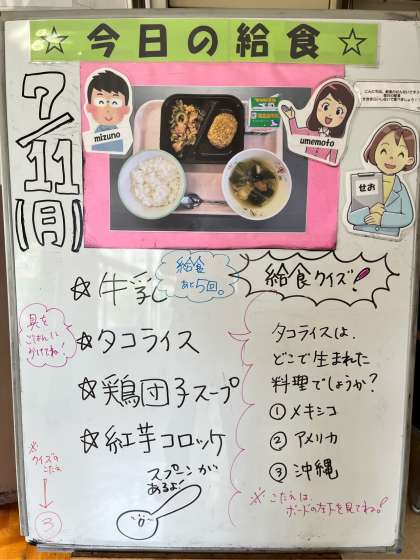 ☆今日の給食☆
7/11(月)
mizuno
umemoto
せお
☆牛乳
給食
あと5回。
☆タコライス
具を
ごはんに
かけてね!
☆鶏団子スープ
☆紅芋コロッケ
スプーンが
あるよ!
※クイズの
こたえ
↓
③
給食クイズ!
タコライスは、
どこで生まれた
料理でしょうか?
①メキシコ
②アメリカ
③沖縄
※こたえは
ボードの左下を見てね。